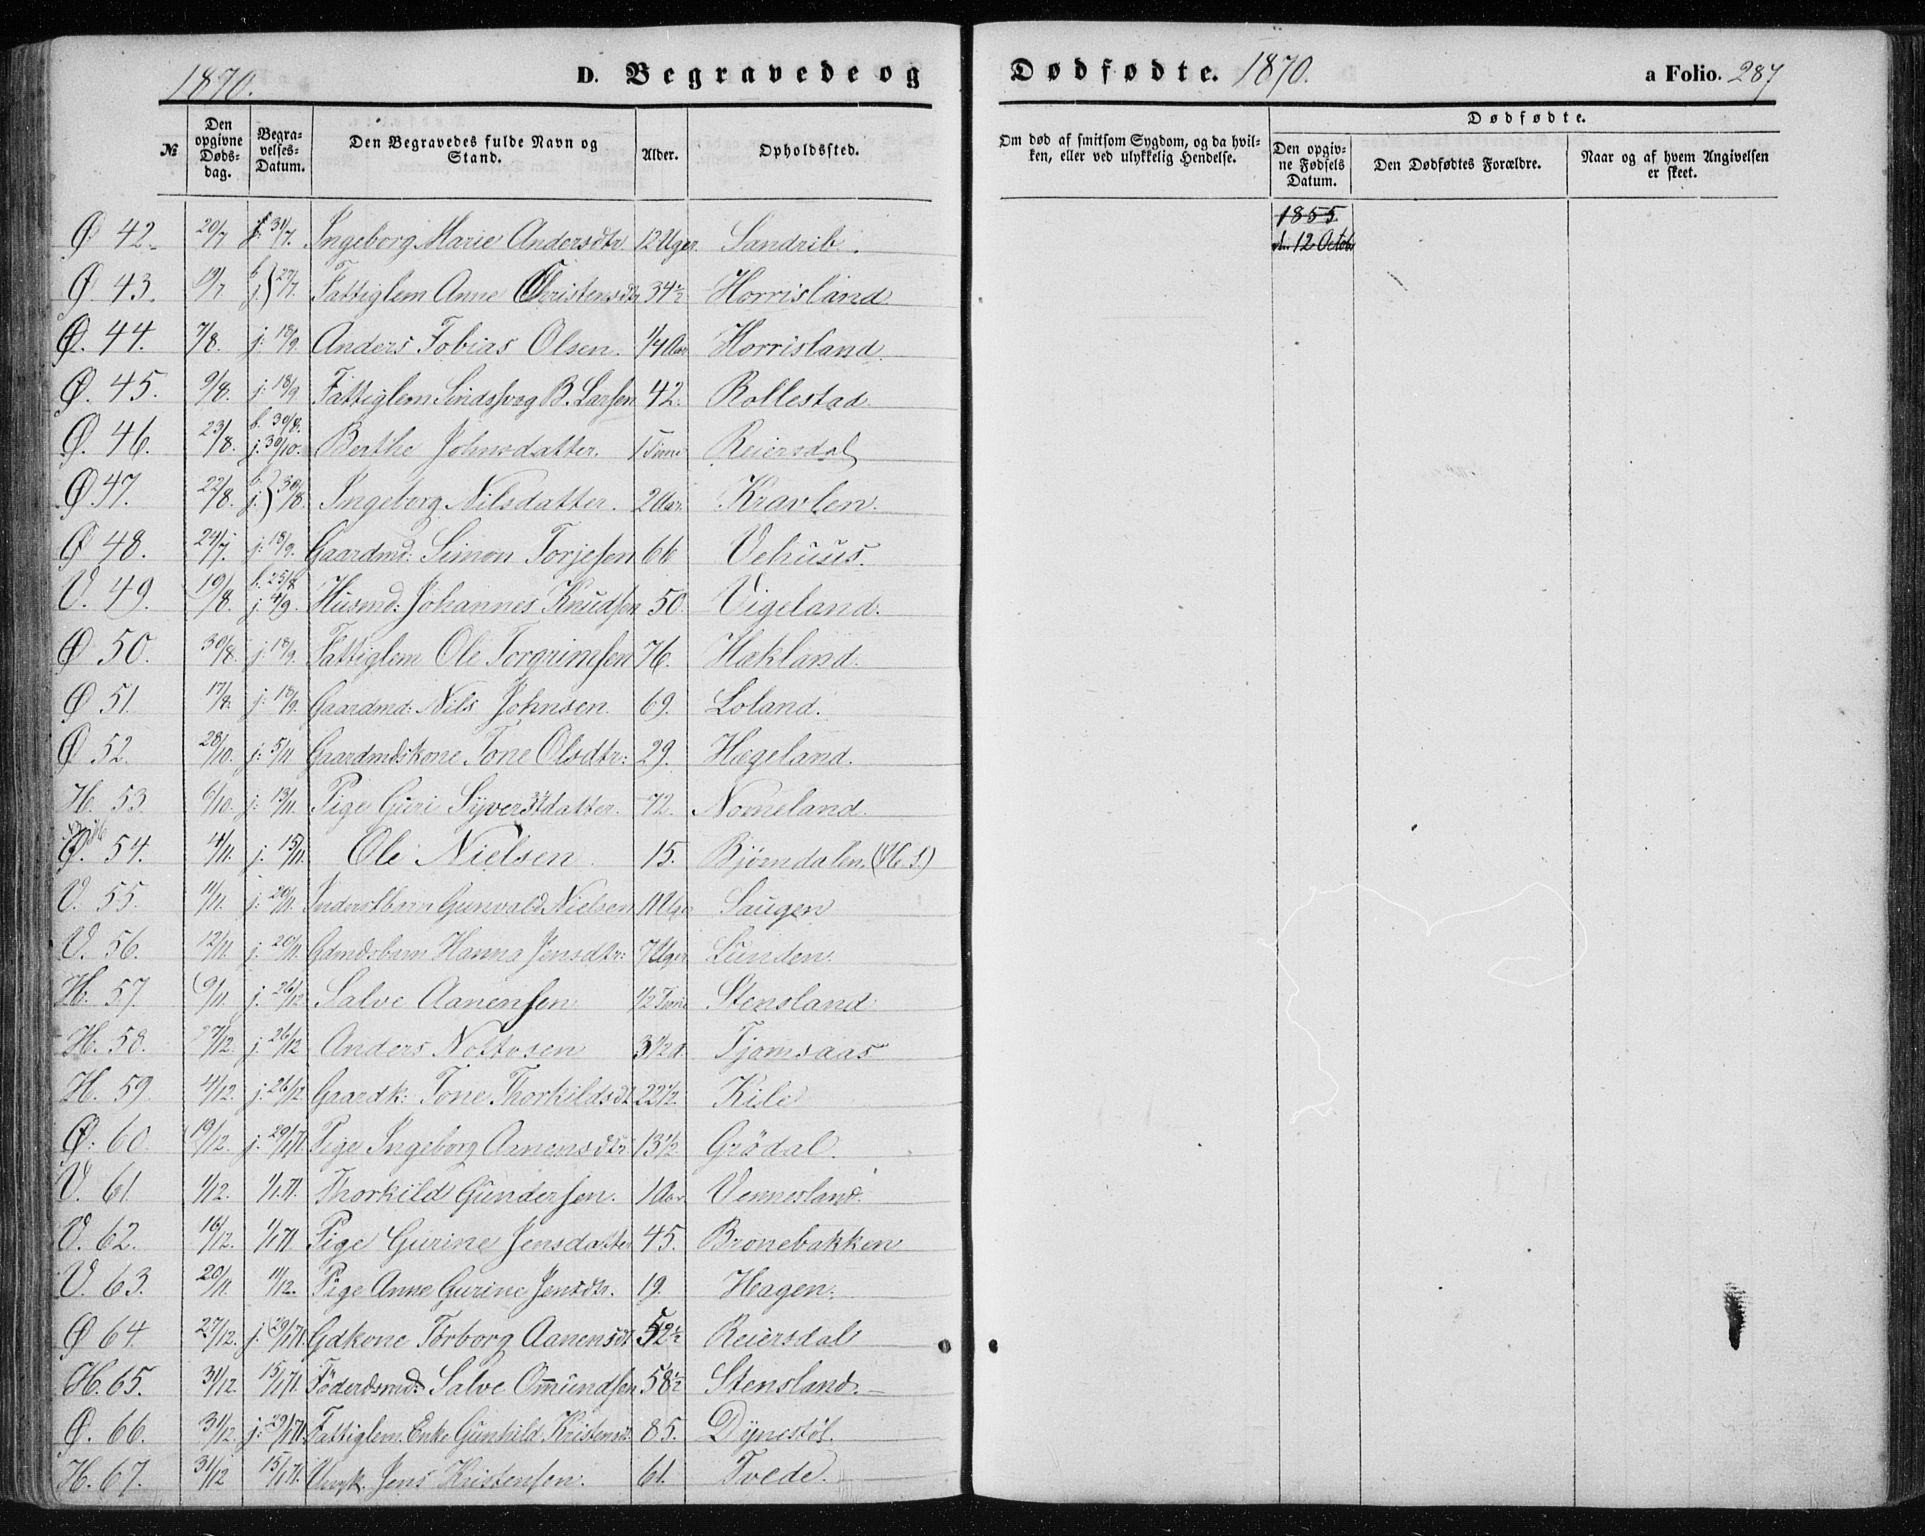 1870. D. Begravede og Dødfødte. 1870. a Folio. 287
№ Den opgivne Døds-dag. Begra-velses-Datum. Den Begravedes fulde Navn og Stand. Alder. Opholdssted. Om død af smitsom Sygdom, og da hvil-ken, eller ved ulykkelig Hendelse. Dødfødte. Den opgiv-ne Fødsels Datum. Den Dødfødtes Forældre. Naar og af hvem Angivelsen er skeet.
1855
d. 12 Octob
Ø 42. 20/7 j. 31/7. Ingeborg Marie Andersdtr 12 Uger Sandrib.
Ø. 43. 19/7 b j } 27/7. Fattiglem Anne Christensdtr 34½ Horrisland
Ø. 44. 7/8. j: 18/9. Anders Tobias Olsen. 1/4 Aar Horrisland
Ø. 45. 9/8. j: 18/9. Fattiglem B. Larsen 42. Rollestad
Ø. 46. 23/8. b. 30/8. j: 30/10. Berthe Johnsdatter. 1 Time Reiersdal
Ø 47. 22/8. b j } 30/8. Ingeborg Nilsdatter. 2 Aar. Kravlen.
Ø 48. 24/7. j: 18/9. Gaardmd: Simon Torjesen 66 Vehuus.
V. 49. 19/8. b. 25/8 j. 4/9. Husmd: Johannes Knudsen 50. Vigeland.
Ø 50. 30/8. j: 18/9. Fattiglem Ole Torgrimsen 76. Hækland.
Ø 51. 17/8. j: 18/9. Gaardmd: Nils Johnsen. 69. Loland.
Ø 52. 28/10. j: 5/11 Gaardmdskone Tone Olsdtr: 29. Hægeland.
H. 53. 6/10. j: 13/11. Pige Guri Syverstdatter. 72. Nomeland.
Ø. 54. 4/11. j. 15/11. Ole Nielsen 15. Bjørndalen. (H. S.)
V. 55. 11/11. j: 20/11. Inderstbarn Gunvald Nielsen 11 Uger Saugen
V. 56. 12/11 j. 20/11. Gdmdsbarn Hanna Jensdtr: 7 Uger Lunden.
H. 57. 9/11. j. 26/12 Salve Aanensen 1/2 Time Stensland
H. 58. 27/12. j. 26/12 Anders Nottosen 3½ d. Tjomsaas
H. 59. 4/12. j: 26/12 Gaardk: Tone Thorkildsdt 22½. Kile
Ø. 60. 19/12. j: 29/1 71. Pige Ingeborg Aanensdtr. 13½. Grödal.
V. 61. 1/12. 1/1.71. Thorkild Gundersen. 1 Aar. Vennesland.
V. 62. 16/12. 1/1 71. Pige Gurine Jensdatter 45. Bronebakken
V. 63. 20/11. 11/12. Pige Anne Gurine Jensdtr. 19. Hagen.
Ø 64. 27/12. j. 29/1 71. Gdkone Torborg Aanensdt 52½ Reiersdal
H. 65. 31/12. 15/1 71. Föderdsmd: Salve Omundsen 58½ Stensland.
Ø. 66. 31/12. j: 29/1 71. Fattiglem. Enke Gunhild Kristensd: 85. Dynestöl.
H. 67. 31/12 15/1 71. Ungk. Jens Kristensen. 61. Tvede.